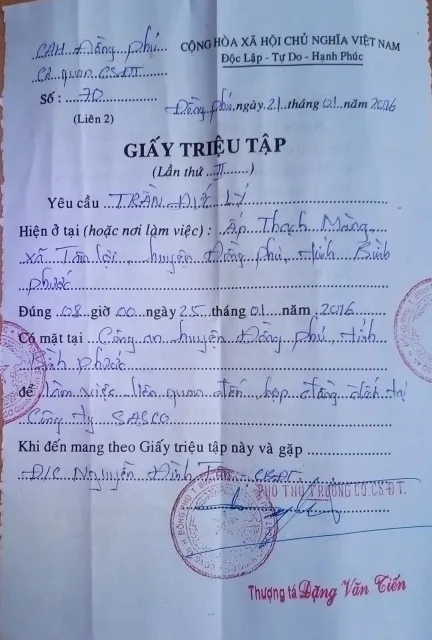 CAH Đồng Phú
CỘNG HÒA XÃ HỘI CHỦ NGHĨA VIỆT NAM
CQ quan CSĐT
Độc Lập - Tự Do - Hạnh Phúc
Số : 70
(Liên 2)
Đồng Phú, ngày 21 tháng 01 năm 2016
GIẤY TRIỆU TẬP
(Lần thứ II)
Yêu cầu TRẦN ĐỨC LÝ
Hiện ở tại (hoặc nơi làm việc) : Ấp Thạch Màng,
xã Tân Lợi, huyện Đồng Phú, tỉnh Bình
Phước
Đúng 08 giờ 00 ngày 25 tháng 01 năm 2016
Có mặt tại Công an huyện Đồng Phú, tỉnh
Bình Phước
để làm việc liên quan đến hợp đồng
Công ty SASCO
Khi đến mang theo Giấy triệu tập này và gặp
Đ/C Nguyễn Đình CSĐT
PHÓ THỦ TRƯỞNG CQ.CSĐT.
Thượng tá Đặng Văn Tiến